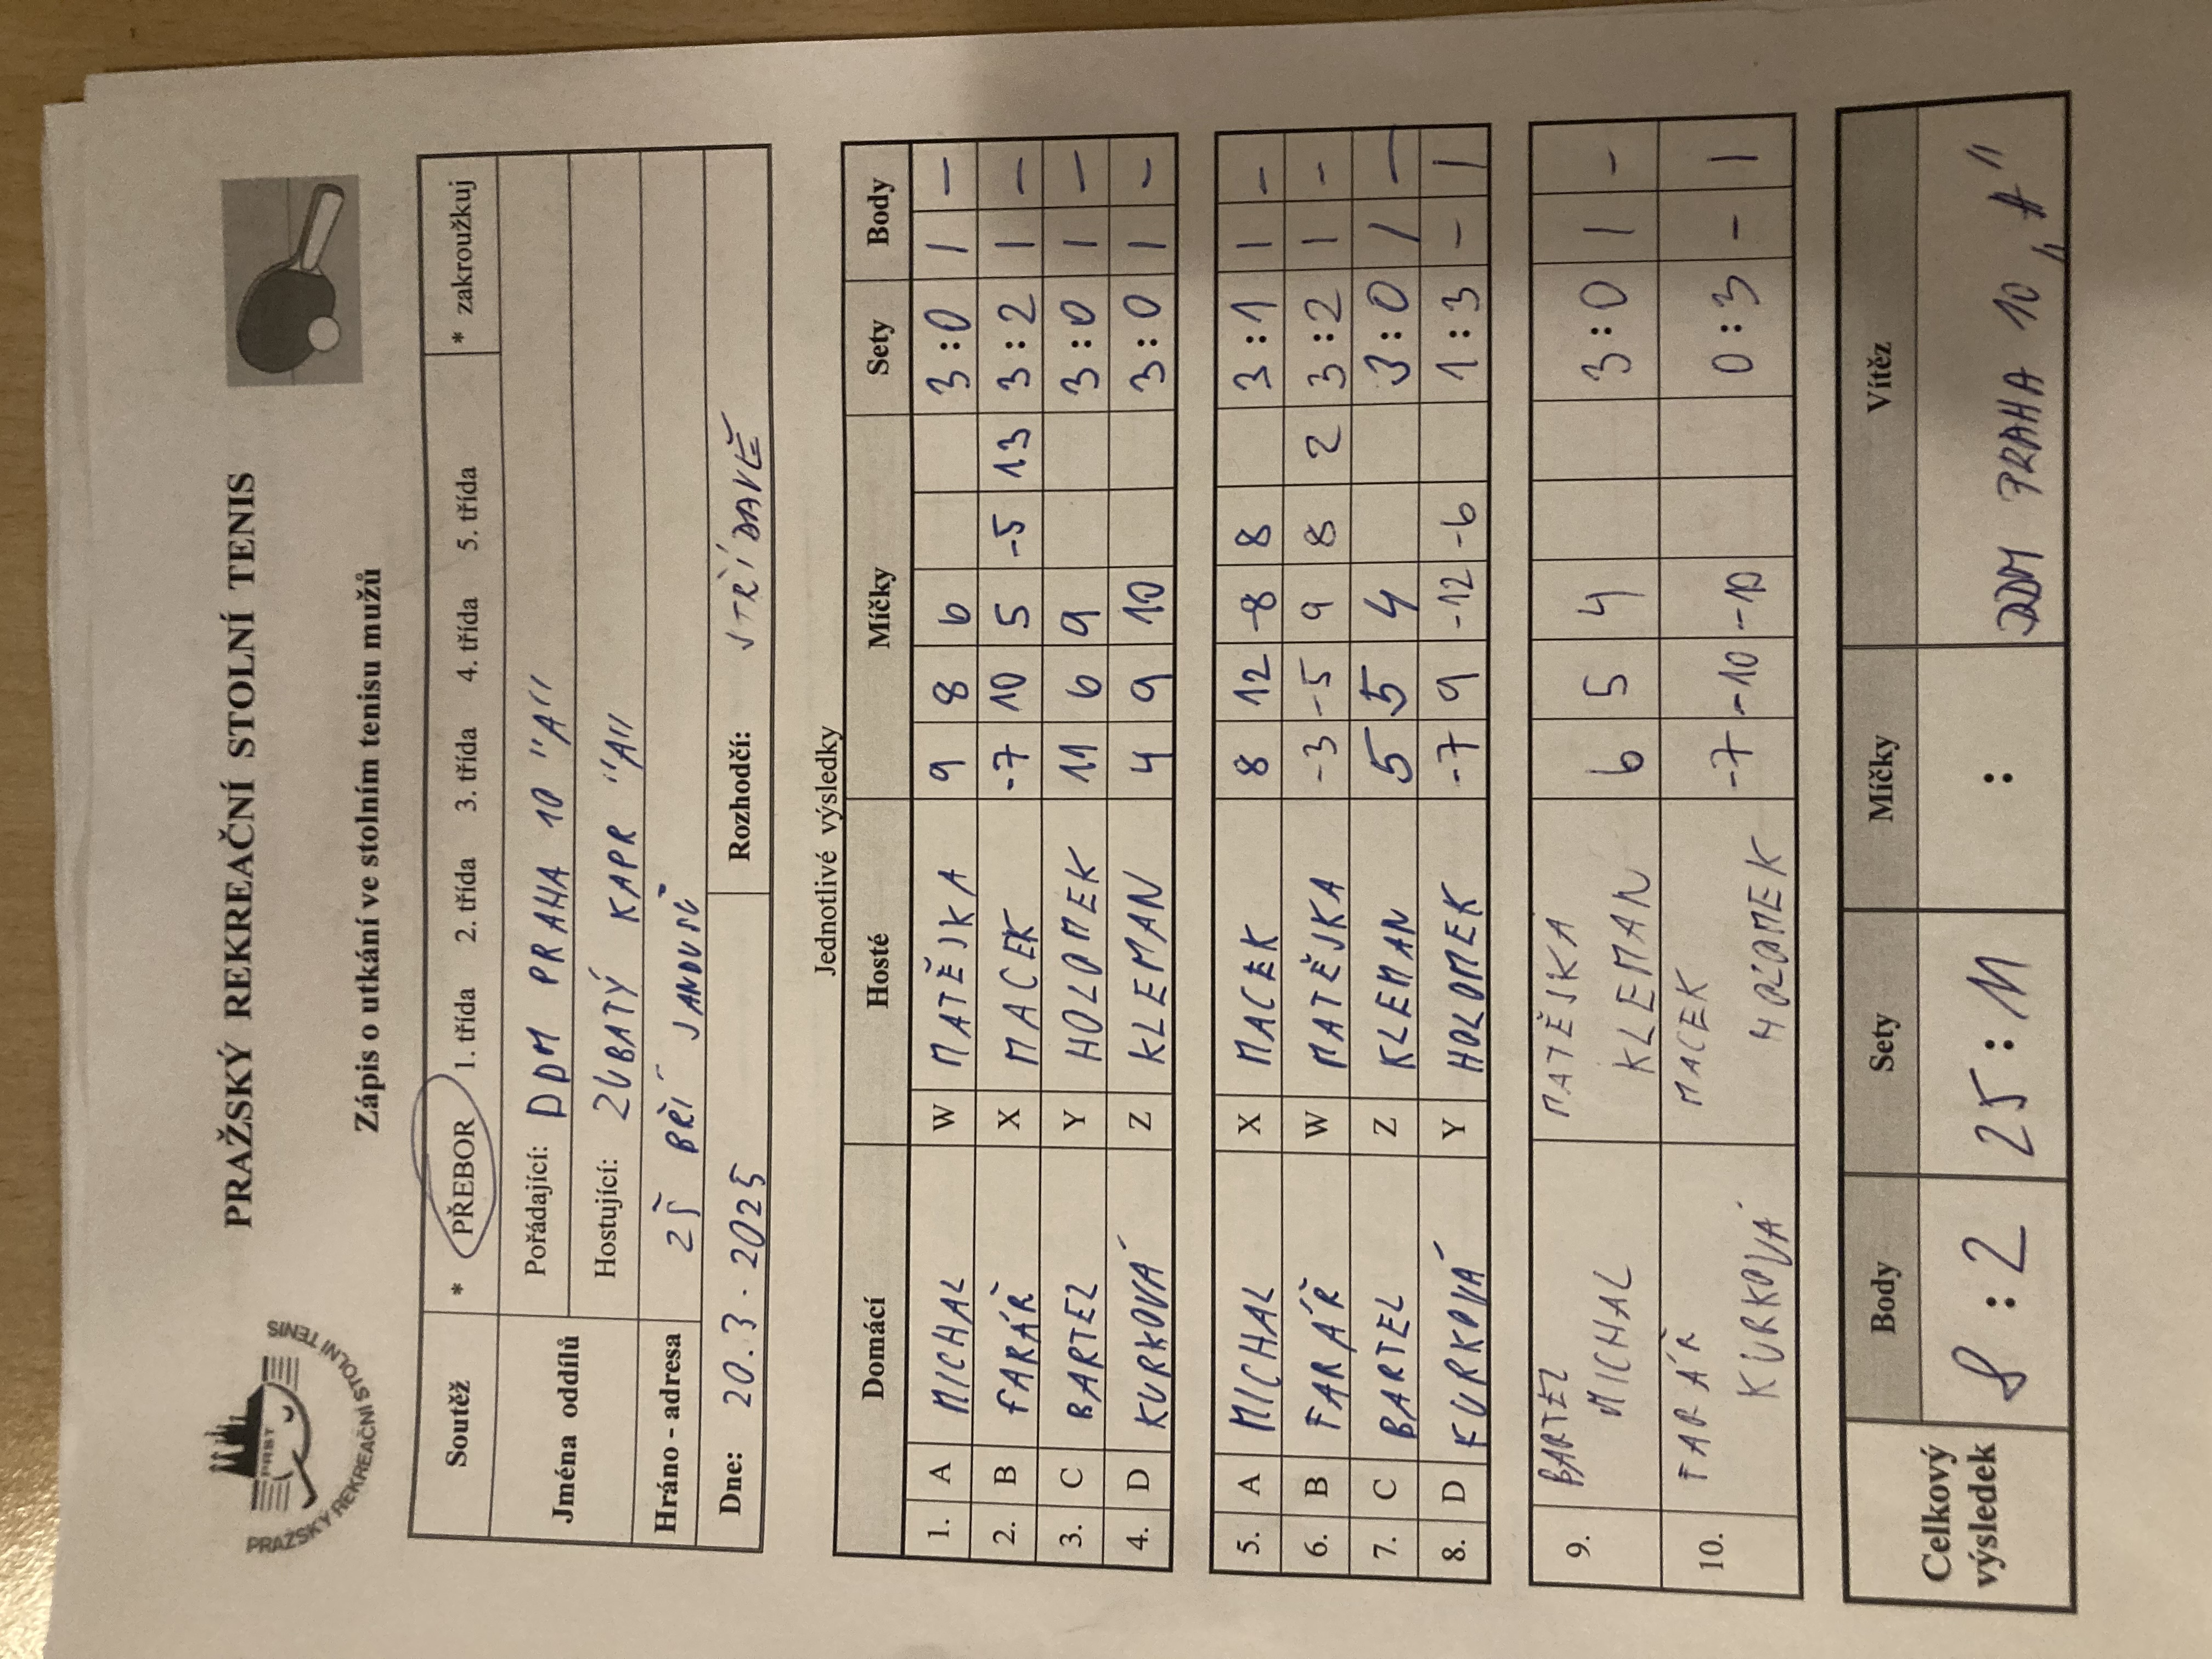 PRAŽSKÝ REKREAČNÍ STOLNÍ TENIS
PRST
PRAŽSKÝ REKREAČNÍ STOLNÍ TENIS
Zápis o utkání ve stolním tenisu mužů
Soutěž * PŘEBOR 1. třída 2. třída 3. třída 4. třída 5. třída * zakroužkuj
Jména oddílů Pořádající: DDM PRAHA 10 "A"
Hostující: ZUBATÝ KAPR "A"
Hráno - adresa ZŠ BŘÍ JANDUSŮ
Dne: 20.3.2025 Rozhodčí: STŘÍDAVĚ
Jednotlivé výsledky
Domácí Hosté Míčky Sety Body
1. A MICHAL W MATĚJKA 9 8 6 3:0 1 –
2. B FARÁŘ X MACEK -7 10 5 -5 13 3:2 1 –
3. C BARTEL Y HOLOMEK 11 6 9 3:0 1 –
4. D KURKOVÁ Z KLEMAN 4 9 10 3:0 1 –
5. A MICHAL X MACEK 8 12 -8 8 3:1 1 –
6. B FARÁŘ W MATĚJKA -3 -5 9 8 2 3:2 1 –
7. C BARTEL Z KLEMAN 5 5 4 3:0 1 –
8. D KURKOVÁ Y HOLOMEK -7 9 -12 -6 1:3 – 1
9. BARTEL MATĚJKA 6 5 4 3:0 1 –
MICHAL KLEMAN
10. FARÁŘ MACEK -7 -10 -10 0:3 – 1
KURKOVÁ HOLOMEK
Celkový výsledek Body Sety Míčky Vítěz
8:2 25:11 : DDM PRAHA 10 „A"